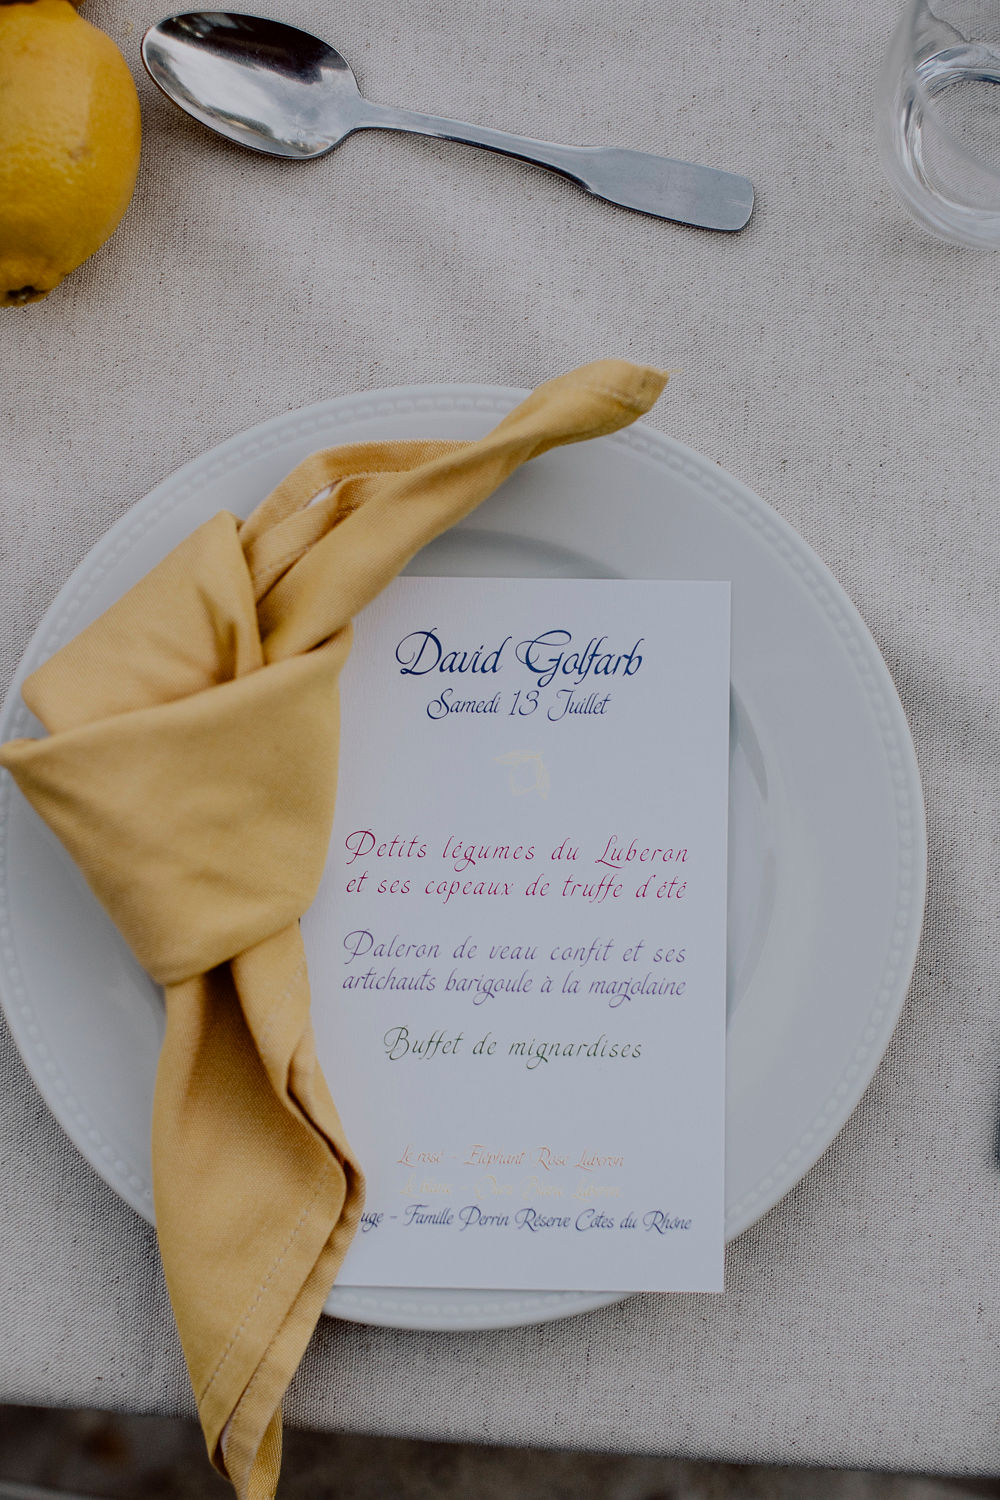 David Golfarb
Samedi 13 Juillet
Petits légumes du Luberon
et ses copeaux de truffe d'été
Paleron de veau confit et ses
artichauts barigoule à la marjolaine
Buffet de mignardises
Le rosé - Eléphant Rose Luberon
uge - Famille Perrin Réserve Côtes du Rhône